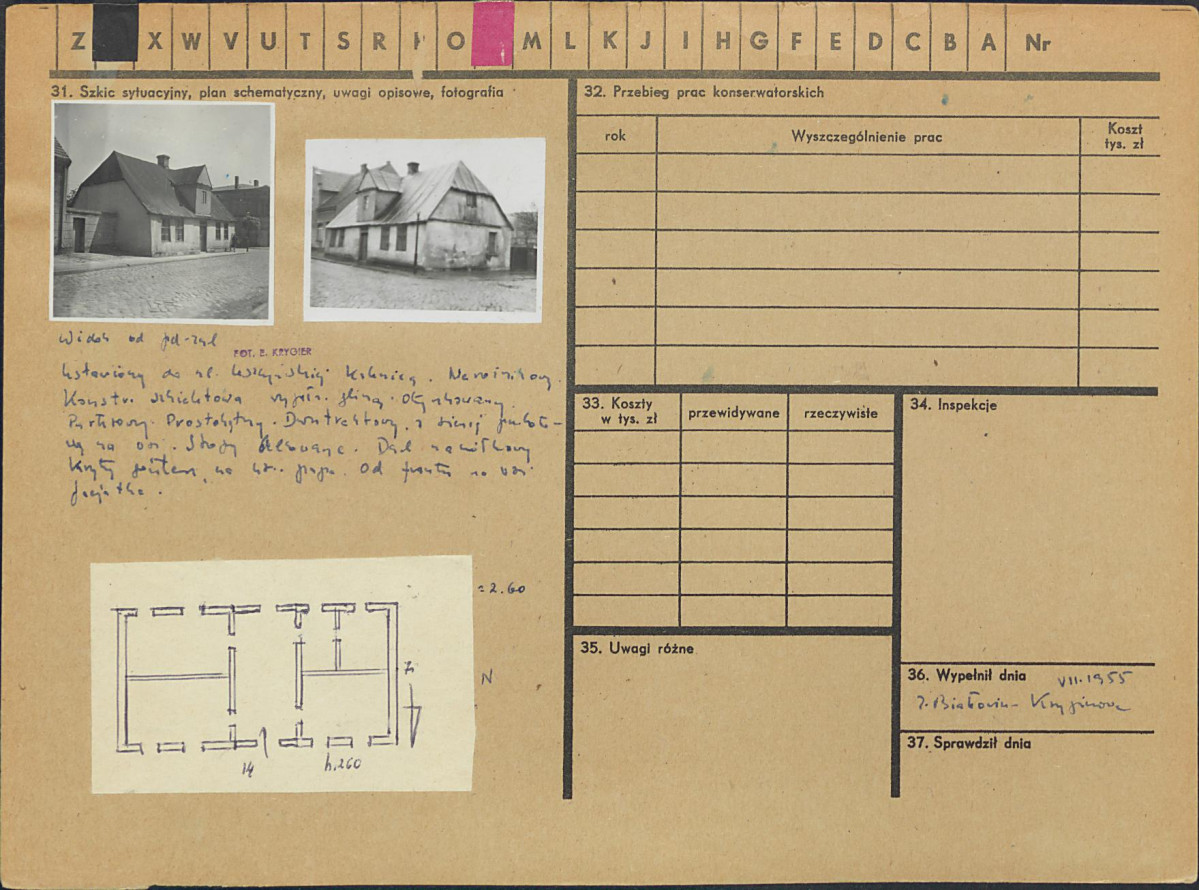 Z X W V U T S R O M L K J I H G F E D C B A Nr
31. Szkic sytuacyjny, plan schematyczny, uwagi opisowe, fotografia
Widok od pd-zach
FOT. E. KRYGIER
Ustawiony do ul. kalenicą. Narożnikowy.
Konstr. szkieletowa wypełn. gliną. Otynkowany.
Parterowy. Prostokątny. Dwutraktowy, z sienią
na osi. Stropy belkowane. Dach naczółkowy
Kryty gontem, na papa. Od frontu na osi
facjatka.
= 2.60
N
14
h. 260
32. Przebieg prac konserwatorskich
rok
Wyszczególnienie prac
Koszt
tys. zł
33. Koszty
w tys. zł
przewidywane
rzeczywiste
34. Inspekcje
35. Uwagi różne
36. Wypełnił dnia VII.1955
37. Sprawdził dnia